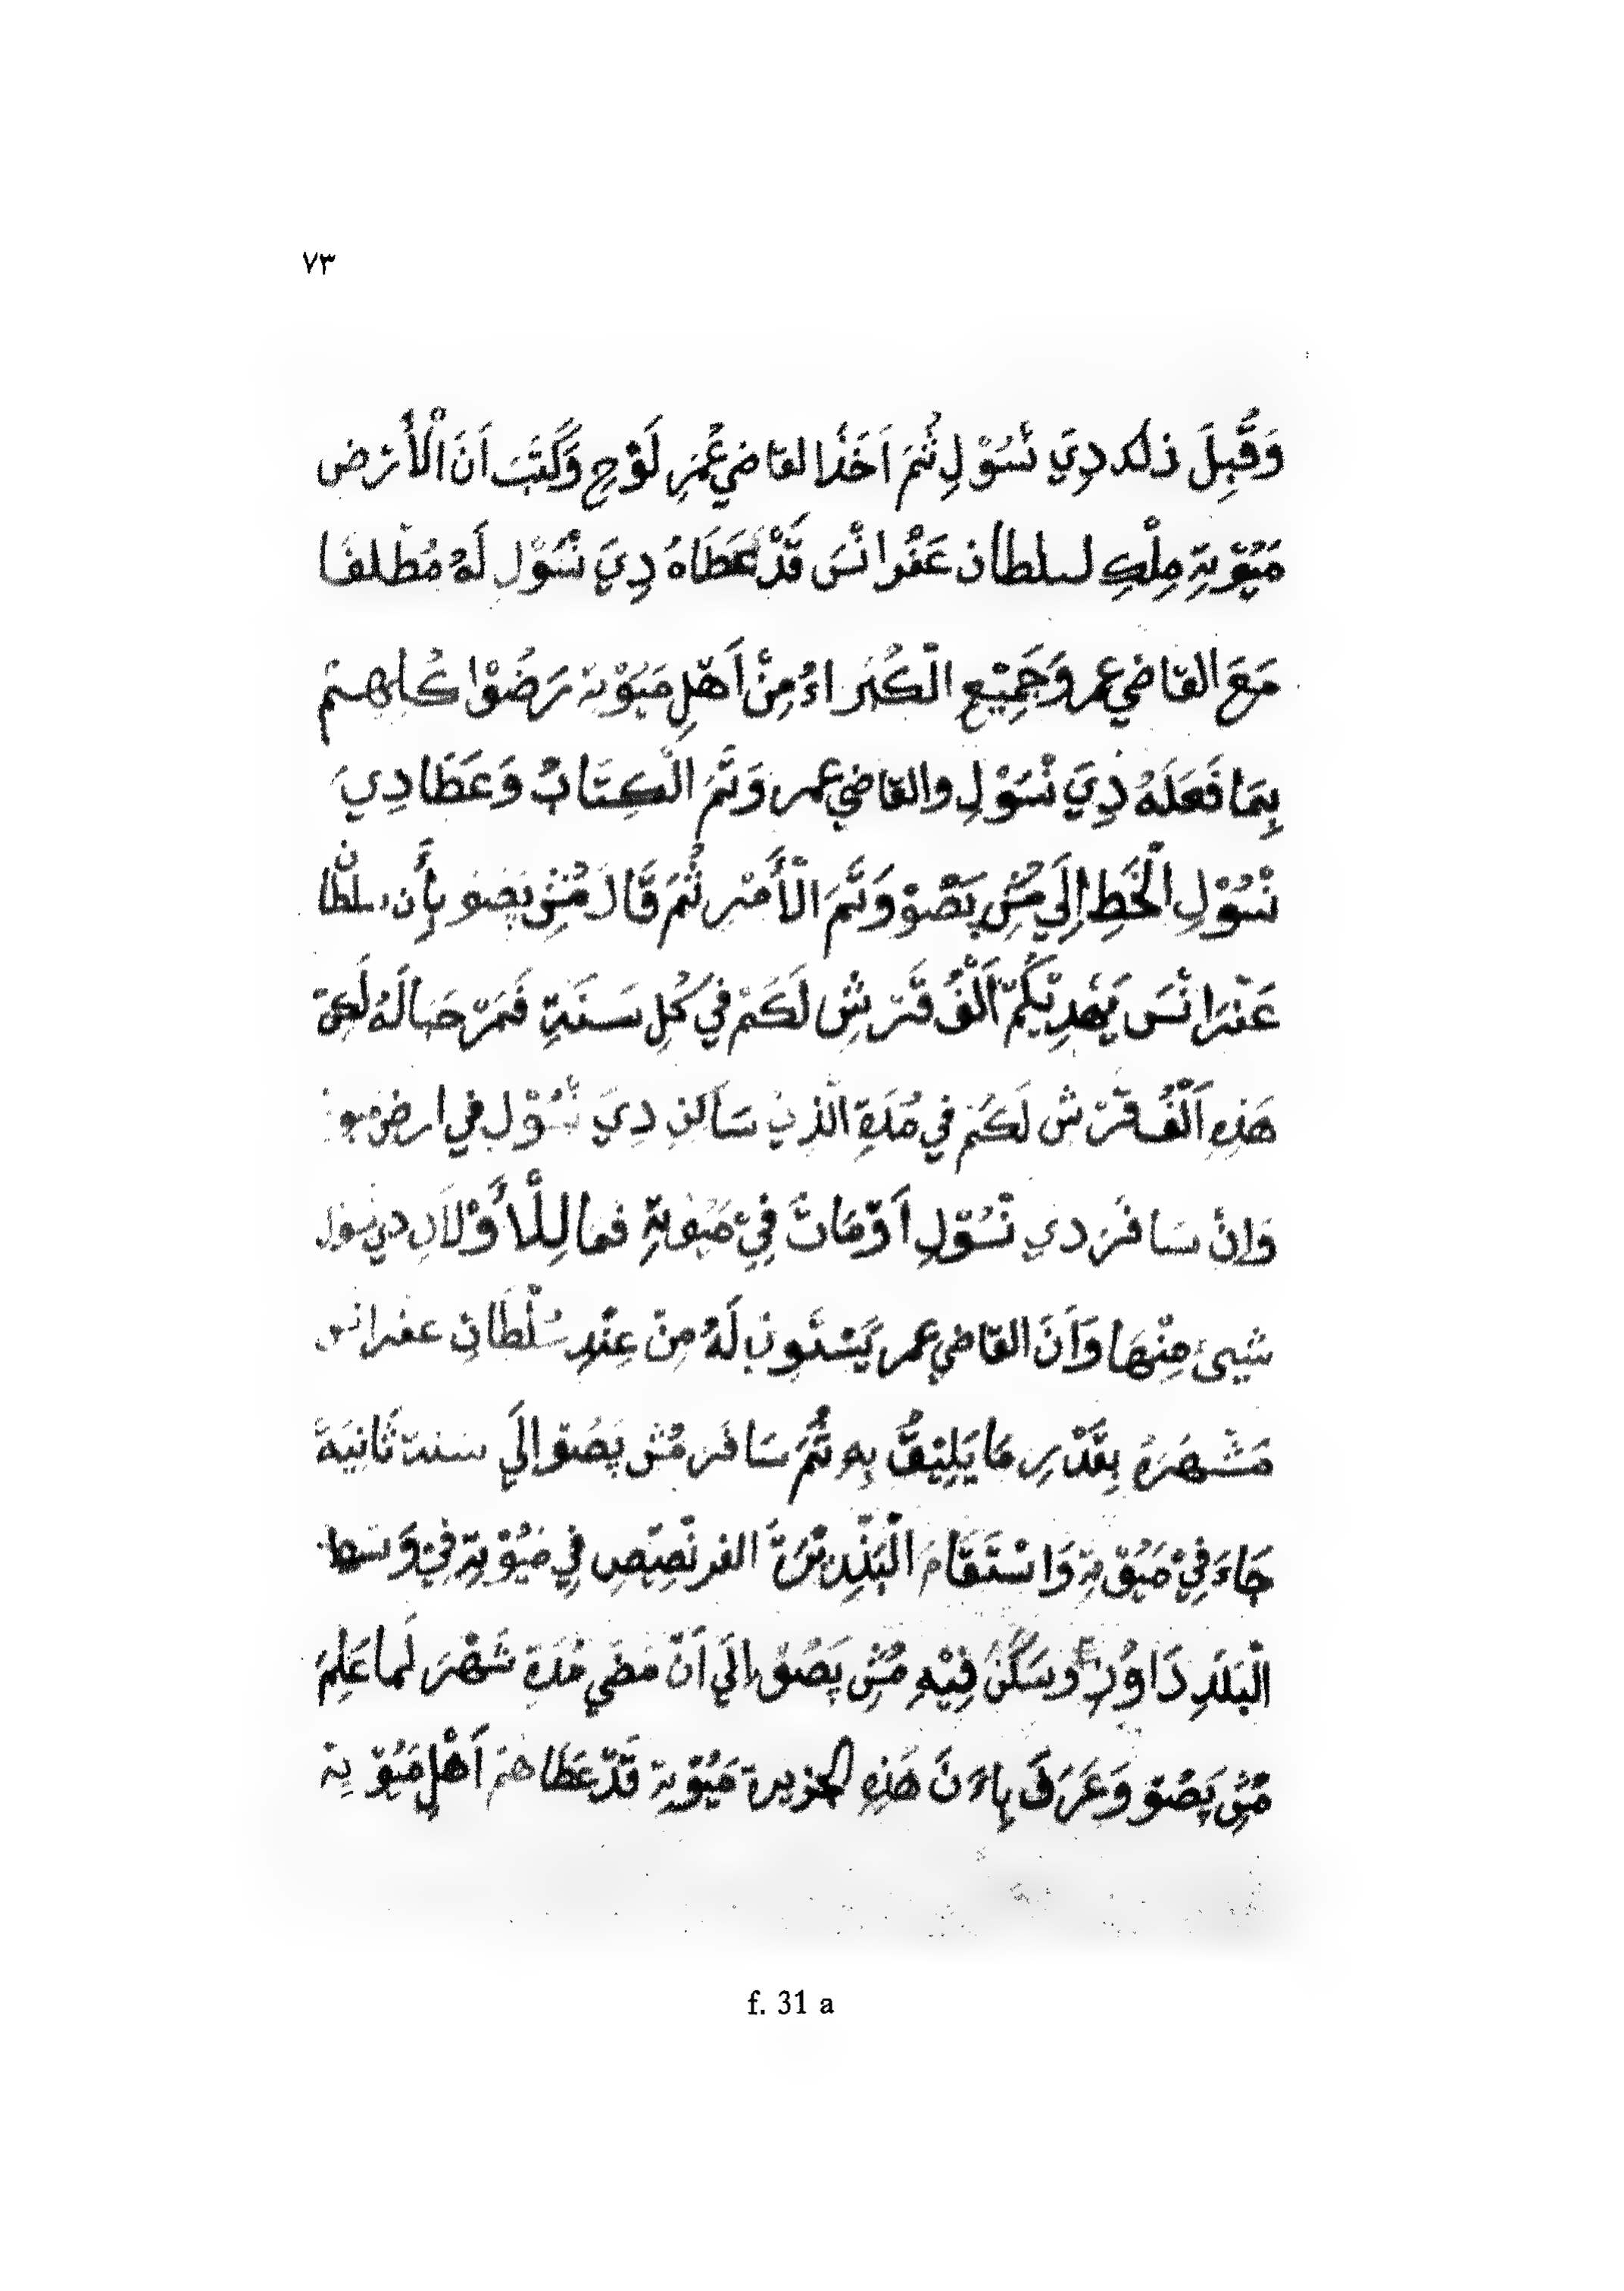 ٧٣
وَقَبِلَ ذلك دِيَ نْسُوْلِ ثُمَ اَخَذَا القاضي عُمَرِ لَوْحِ وَكَتَبَ اَنَ الْأَرْض
مَيُوْتِةِ مِلْكِ لسلطان عَفْرانْسَ قَدْ عَطَاهُ دِيَ نْسُوْلِ لَهُ مُطْلقا
مَعَ القاضي عمر وَجَمِيْعِ الْكُبَراءُ مِنْ اَهْلِ مَيُوْتة رَضُوْا كُلهم
بِمَا فَعَلَهُ دِيَ نْسُوْلِ والقاضي عمر وَتَمَّ الْكِتَابُ وَعَطَا دِيَ
نْسُوْلِ الْخَطِ اِلَي مُسْ پَصُوْ وَتَمَّ الْأَمْر ثُمَ قَالَ مُسْ پَصُو بِأَن سلطان
عَفْرَانْسَ يَهْدِيْكُمْ اَلْفُ قَرْشِ لَكُمْ في كُلِ سَنَةِ فَمَرْحَبا لَهُ لَكِنّ
هَذِهِ اَلْفُ قَرْش لَكُمْ في مُدَةِ الَّذِيْ سَاكن دِيَ نْسُوْلِ في ارض ميوتة
وَاِنْ سَافَرَ دي نْسُوْلِ اَوْ مَاتَ فِيْ مَيُوتةِ فما لِلْأَوْلادِ دي نسول
شيئ مِنْهَا وَاَنَ القاضي عمر يَسْتَوب لَهُ مِنْ عِنْدِ سُلْطَانِ عفرانس
مَشْهَرَهُ بِقَدْرِ مَا يَلِيْقُ بِهِ ثُمَّ سَافَر مُسْ پَصُوْ اِلَي سنة ثَانِيَة
جَاءَ فِيْ مَيُوْتة وَاسْتَقَامَ الْبَنْدِيْرَة الفرنْصِيْصِ فِي مَيُوْتِةِ فِيْ وَسط
الْبَلَدِ دَاوُنِ وسَكَنَ فِيْهِ مُسْ پَصُوْ اِلَي اَنْ مَضَي مُدَةِ شَهْرَ لَما عَلِمَ
مُسْ پَصُوْ وَعَرَفَ بِاءَنَ هَذِهِ الجزيرة مَيُوْتة قَدْ عَطَاهَمْ اَهْلِ مَيُوْتِة
f. 31 a